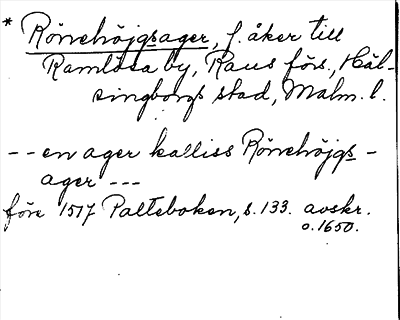 * Rönehöjgsager, f. åker till
Ramlösa by, Raus förs., Häl-
singborgs stad, Malm. l.
-- en ager kalliss Rönehöjgs-
ager ---
före 1517 Palteboken, s. 133. avskr.
o. 1650.